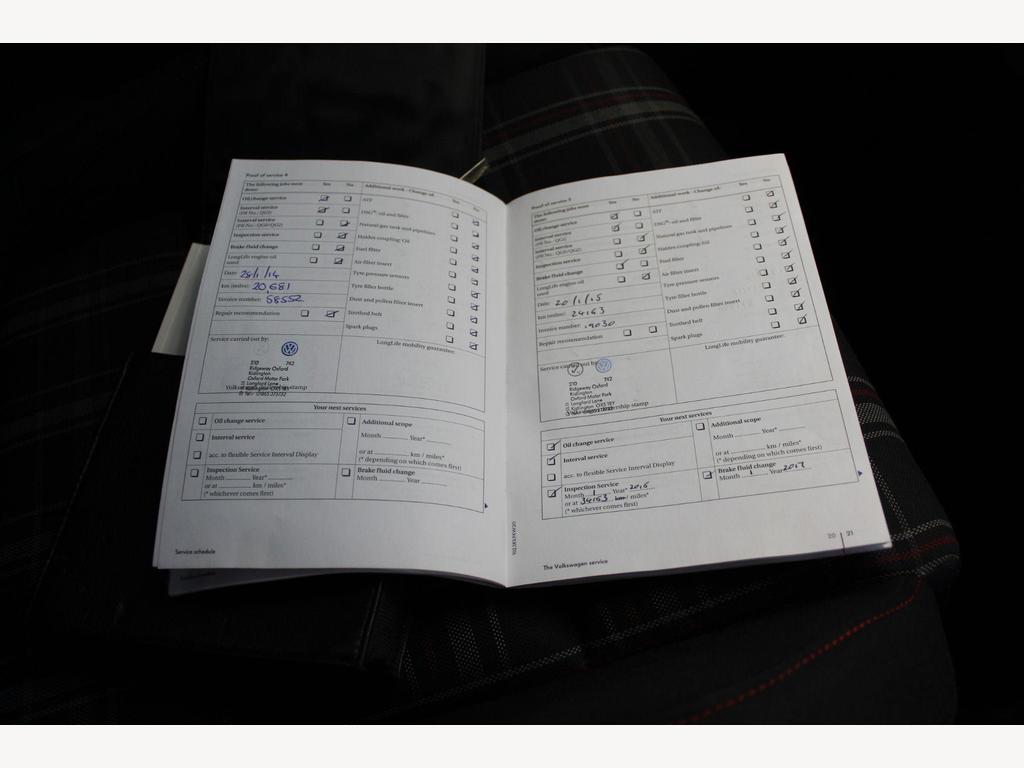 Proof of service 4
The following jobs were done: Yes No Additional work - Change of: Yes No
Oil change service ATF
Interval service (PR No.: QG1) DSG®: oil and filter
Interval service (PR No.: QG0/QG2) Natural gas tank and pipelines
Inspection service Haldex coupling: Oil
Brake fluid change Fuel filter
LongLife engine oil used: Air filter insert
Date: 28/1/14 Tyre pressure sensors
km (miles): 20,681 Tyre filler bottle
Invoice number: 58552 Dust and pollen filter insert
Repair recommendation Toothed belt
Spark plugs
Service carried out by: LongLife mobility guarantee:
210 742
Ridgeway Oxford
Kidlington
Oxford Motor Park
Langford Lane
Kidlington OX5 1RY
Your next services
Oil change service Additional scope
Interval service Month Year*
acc. to flexible Service Interval Display or at km / miles*
(* depending on which comes first)
Inspection Service Brake fluid change
Month Year* Month Year
or at km / miles*
(* whichever comes first)
Service schedule
Proof of service 5
The following jobs were done: Yes No Additional work - Change of: Yes No
Oil change service ATF
Interval service (PR No.: QG1) DSG®: oil and filter
Interval service (PR No.: QG0/QG2) Natural gas tank and pipelines
Inspection service Haldex coupling: Oil
Brake fluid change Fuel filter
LongLife engine oil used: Air filter insert
Date: 20/1/15 Tyre pressure sensors
km (miles): 24163 Tyre filler bottle
Invoice number: 9030 Dust and pollen filter insert
Repair recommendation Toothed belt
Spark plugs
Service carried out by: LongLife mobility guarantee:
210 742
Ridgeway Oxford
Kidlington
Oxford Motor Park
Langford Lane
Kidlington OX5 1RY
Your next services
Oil change service Additional scope
Interval service Month Year*
acc. to flexible Service Interval Display or at km / miles*
(* depending on which comes first)
Inspection Service Brake fluid change
Month 1 Year* 2016 Month 1 Year 2017
or at 34163 km / miles*
(* whichever comes first)
The Volkswagen service
20 21